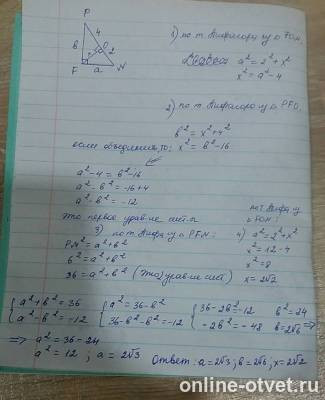 P
4
O
в 2
F a N
1) по т. Пифагора из △ FON:
a² = 2² + x²
x² = a² - 4
2) по т. Пифагора из △ PFO:
в² = x² + 4²
если объединить, то: x² = в² - 16
a² - 4 = в² - 16
a² - в² = -16 + 4
a² - в² = -12
Это первое уравн-ие сист-ы
3) по т. Пифаг из △ PFN:
PN² = a² + в²
6² = a² + в²
36 = a² + в² (Это 2 уравн-ие сист)
по т. Пифаг из
△ FON:
4) a² = 2² + x²
x² = 12 - 4
x² = 8
x = 2√2
{ a² + в² = 36 { a² = 36 - в² { 36 - 2в² = -12 в² = 24
{ a² - в² = -12 { 36 - в² - в² = -12 { -2в² = -48 в = 2√6 ⇒
⇒ a² = 36 - 24
a² = 12 ; a = 2√3 Ответ: a = 2√3; в = 2√6; x = 2√2
online-otvet.ru